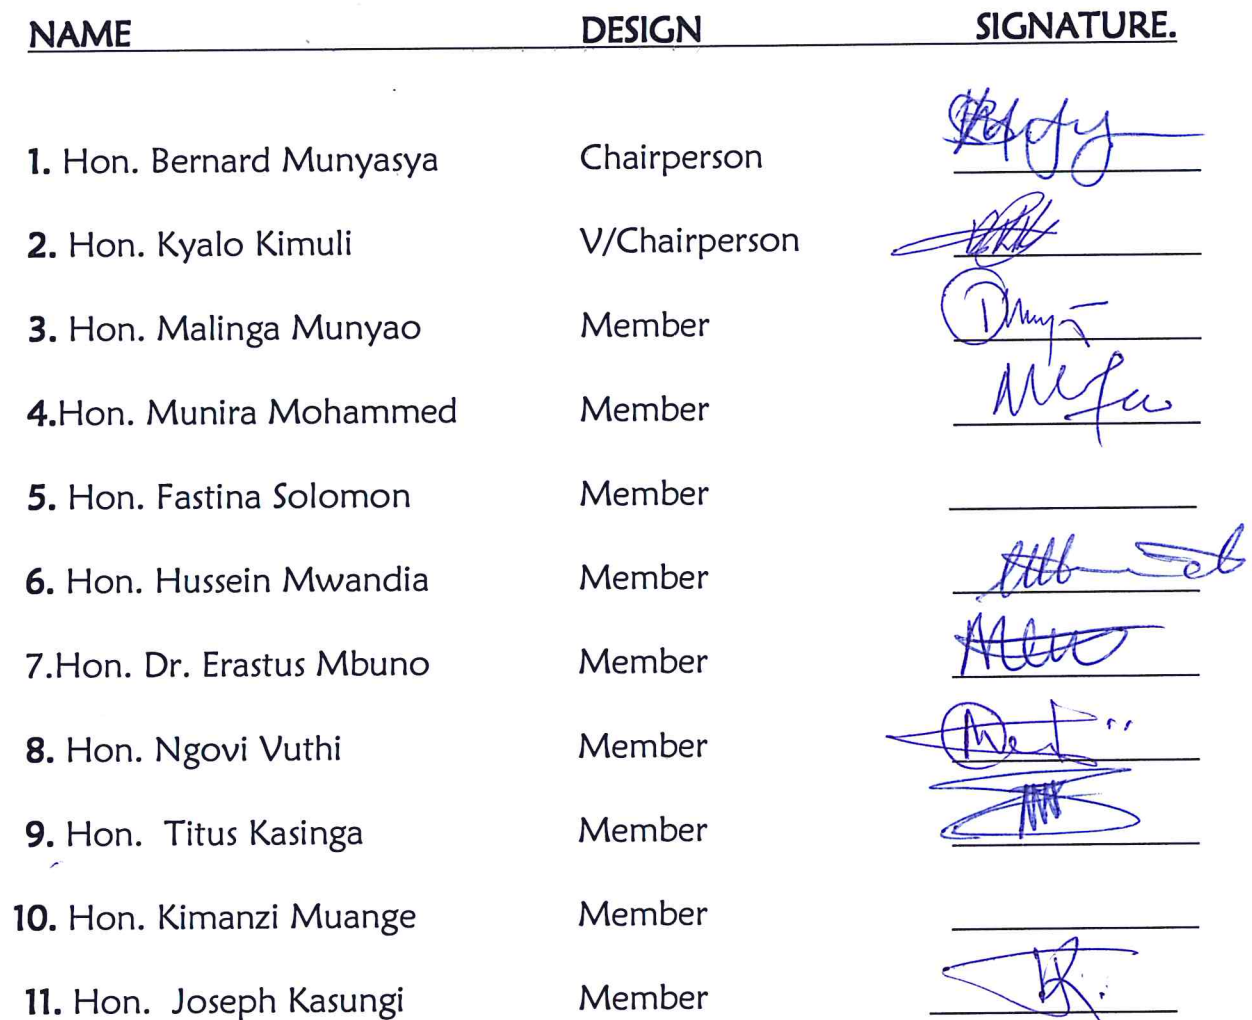 NAME DESIGN SIGNATURE.
1. Hon. Bernard Munyasya Chairperson
2. Hon. Kyalo Kimuli V/Chairperson
3. Hon. Malinga Munyao Member
4.Hon. Munira Mohammed Member
5. Hon. Fastina Solomon Member
6. Hon. Hussein Mwandia Member
7.Hon. Dr. Erastus Mbuno Member
8. Hon. Ngovi Vuthi Member
9. Hon. Titus Kasinga Member
10. Hon. Kimanzi Muange Member
11. Hon. Joseph Kasungi Member